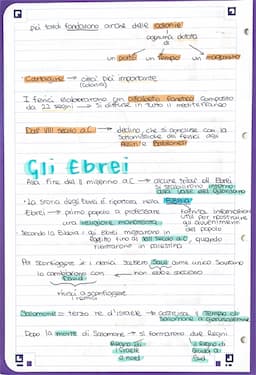 più tardi fondarono anche delle colonie
ognuna dotata
di
un porto un tempio un magazzino
Cartagine → città più importante
(colonia)
I fenici elaborarono un alfabeto fonetico composto
da 22 segni → si diffuse in tutto il mediterraneo
Dall'VIII secolo a.C → declino che si concluse con la
sottomissione dei fenici agli
Assiri e Babilonesi
Gli Ebrei
Alla fine del II millennio a.C → alcune tribù di Ebrei
si stabilirono
• La storia degli Ebrei è riportata nella Bibbia
Ebrei → primo popolo a professare
una religione monoteista
fornisce informazioni
utili per ricostruire
gli avvenimenti
del popolo
• Secondo la Bibbia, gli Ebrei migrarono in
Egitto fino al XIII secolo a.C, quando
ritornarono in Palestina
Per sconfiggere i nemici scelsero Saul come unico Sovrano
lo cambiarono con ← non ebbe successo
David
riuscì a sconfiggere
i nemici
Salomone = terzo re d'Israele → costruì il Tempio di
Salomone a Gerusalemme
Dopo la morte di Salomone → si formarono due Regni
Regno di
Israele
a nord
il Regno di
Giuda a
Sud